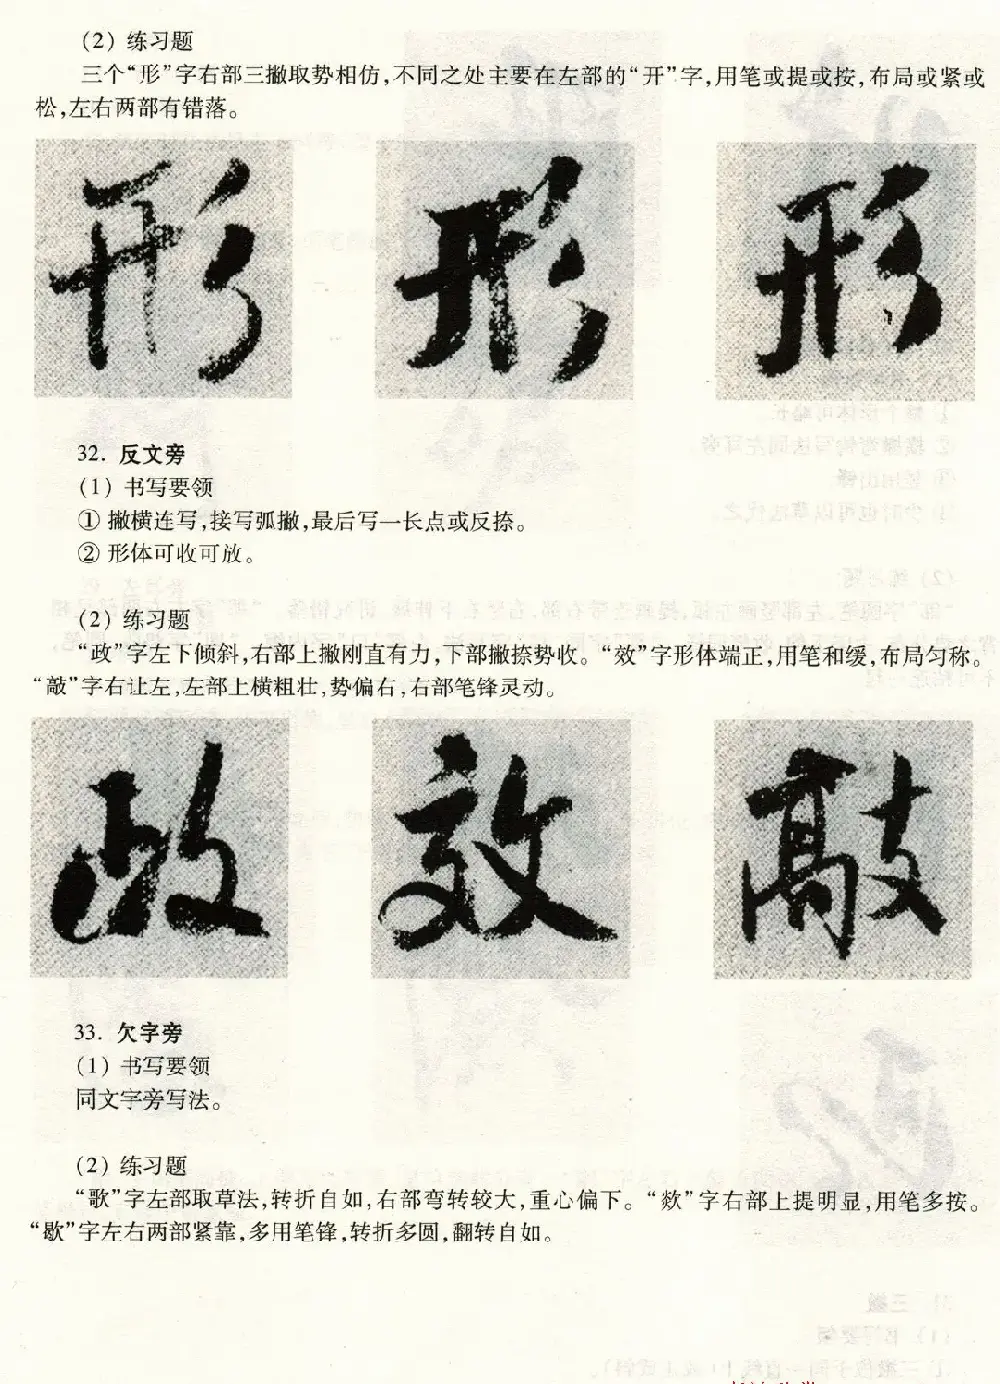 (2) 练习题
三个“形”字右部三撇取势相仿,不同之处主要在左部的“开”字,用笔或提或按,布局或紧或
松,左右两部有错落。
形 形 形
32. 反文旁
(1) 书写要领
① 撇横连写,接写弧撇,最后写一长点或反捺。
② 形体可收可放。
(2) 练习题
“政”字左下倾斜,右部上撇刚直有力,下部撇捺势收。“效”字形体端正,用笔和缓,布局匀称。
“敲”字右让左,左部上横粗壮,势偏右,右部笔锋灵动。
政 效 敲
33. 欠字旁
(1) 书写要领
同文字旁写法。
(2) 练习题
“歌”字左部取草法,转折自如,右部弯转较大,重心偏下。“欸”字右部上提明显,用笔多按。
“歇”字左右两部紧靠,多用笔锋,转折多圆,翻转自如。